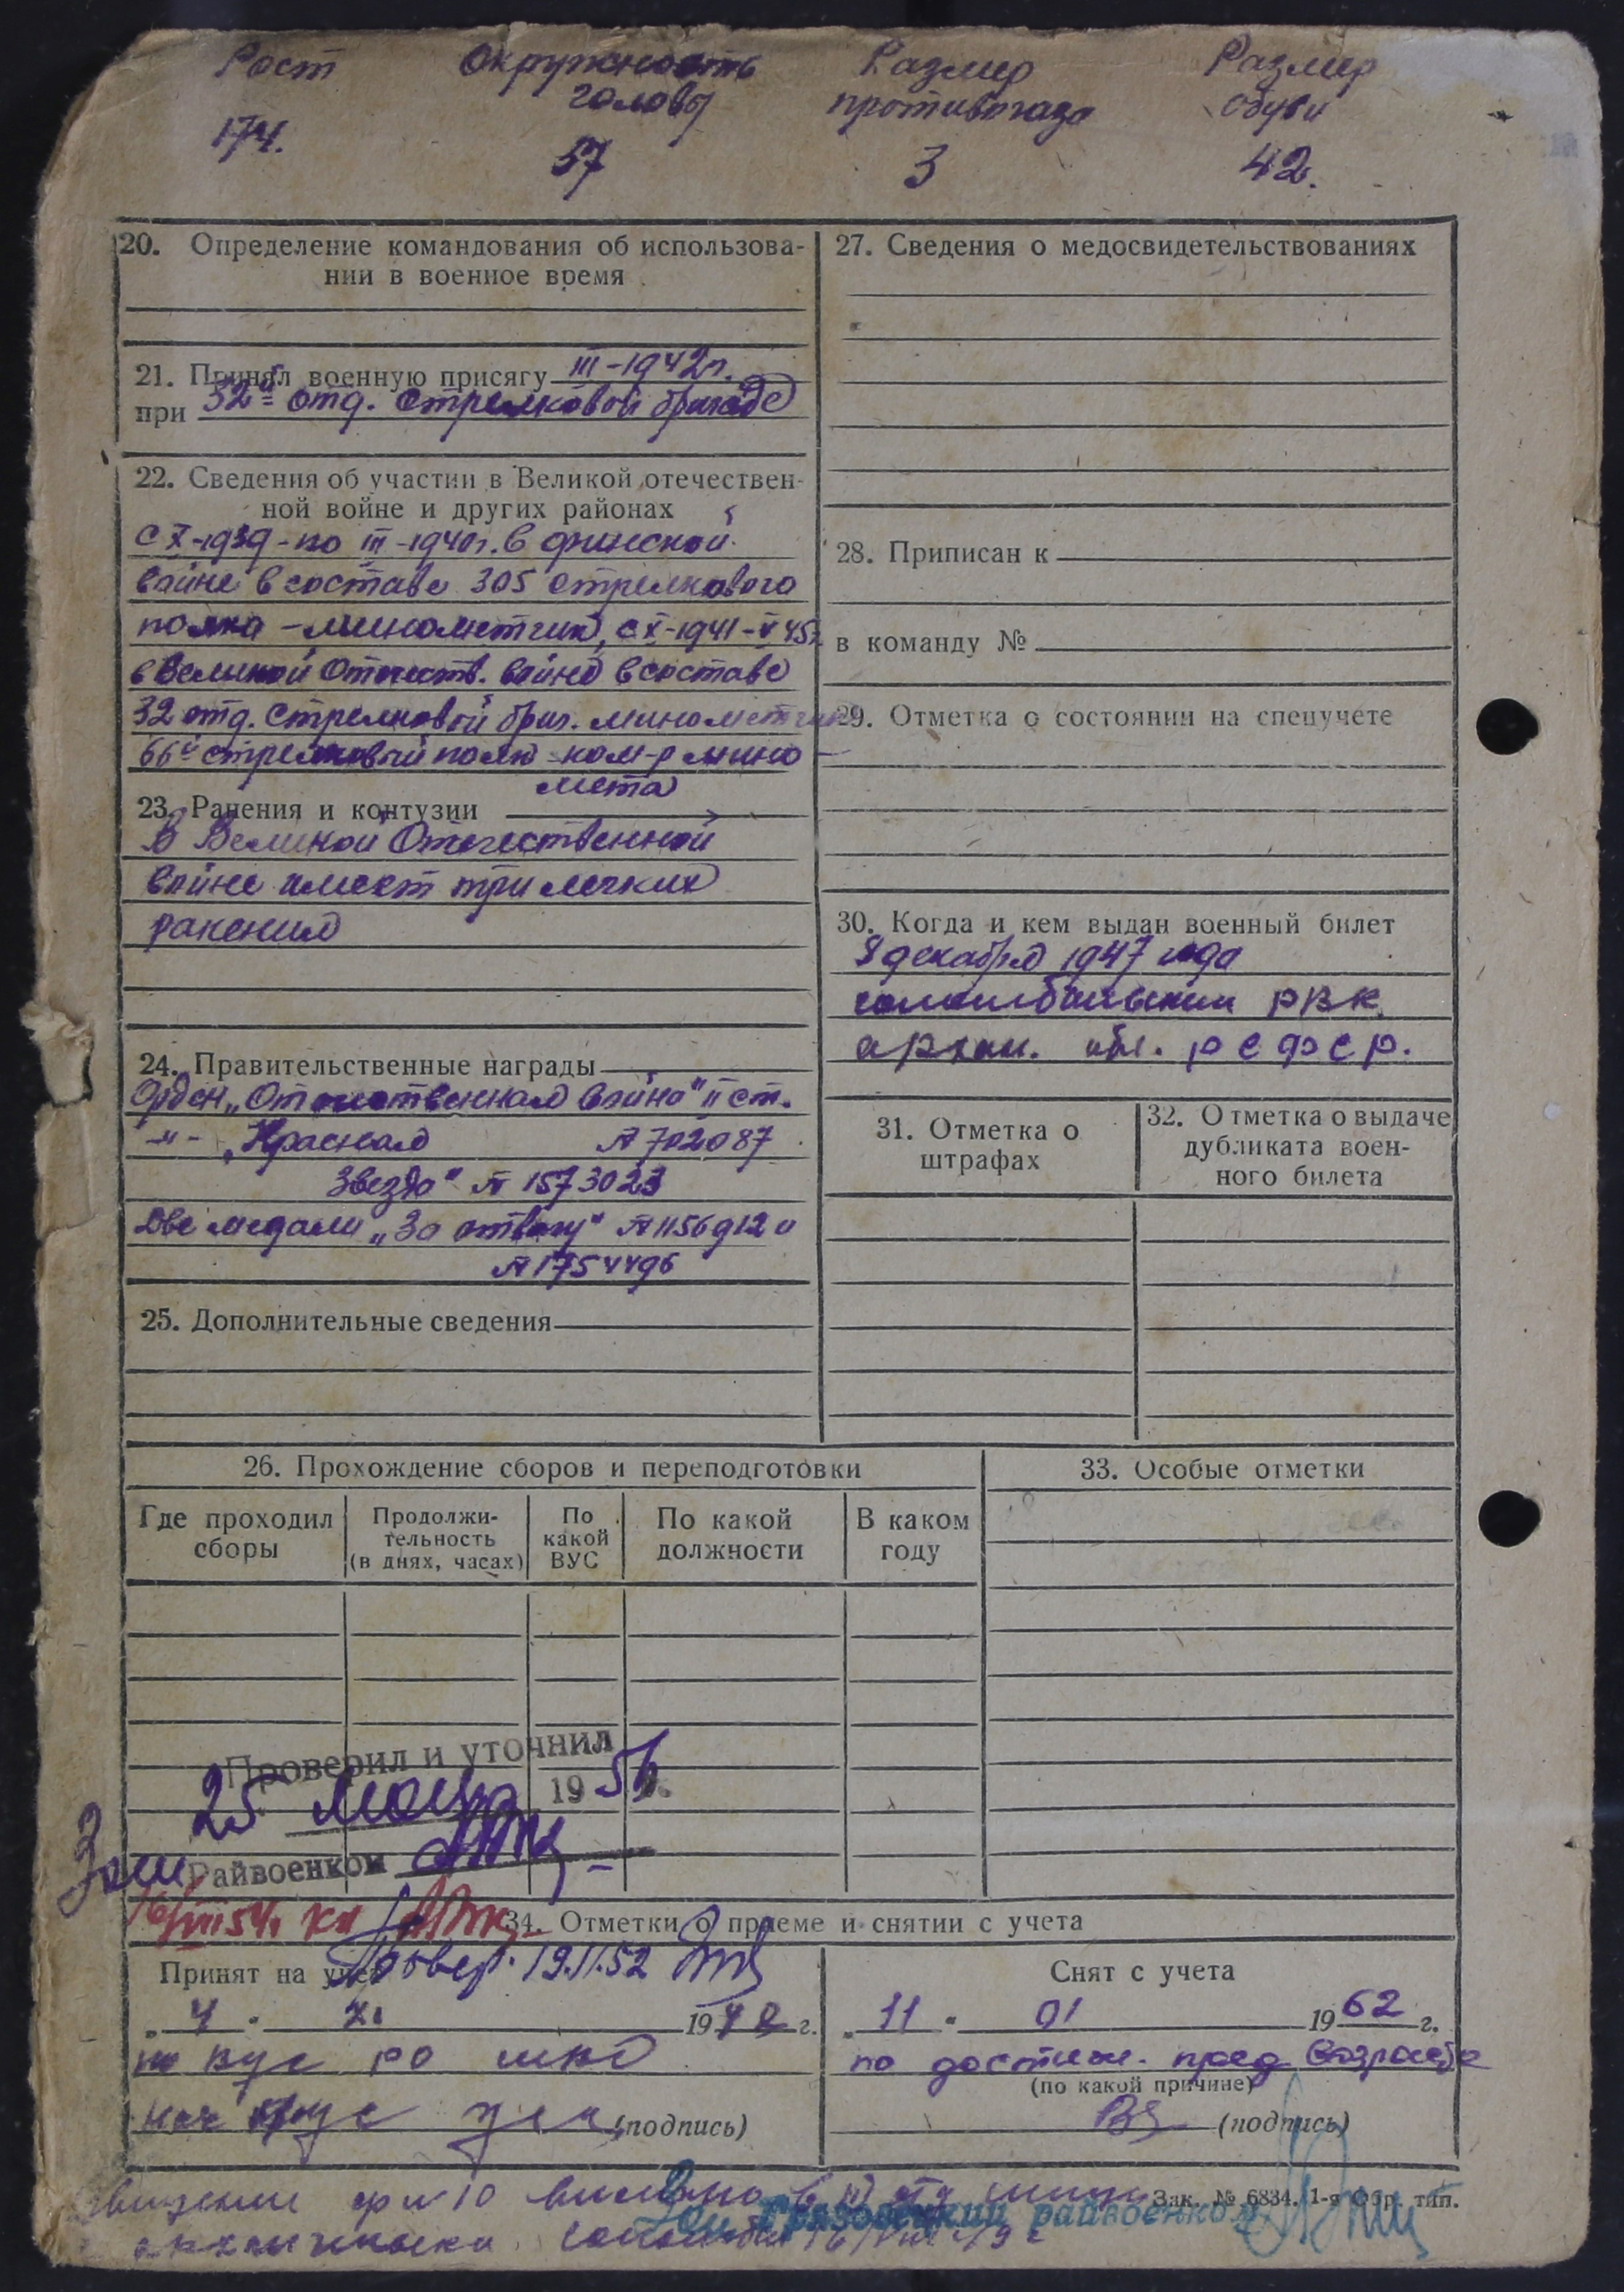 Рост Окружность Размер Размер
головы противогаза обуви
174. 57 3 42.
20. Определение командования об использова-
нии в военное время
21. Принял военную присягу III-1942г.
при 32й отд. стрелковой бригаде
22. Сведения об участии в Великой отечествен-
ной войне и других районах
с X-1939-по III-1940г. в финской
войне в составе 305 стрелкового
полка - минометчик, с X-1941-V 45г.
в Великой Отечеств. войне в составе
32 отд. стрелковой бриг. минометчик
66й стрелковый полк ком-р мино
мета
23. Ранения и контузии
В Великой Отечественной
войне имеет три легких
ранения
24. Правительственные награды
Орден „Отечественная война" II ст.
-"- „Красная № 702087
Звезда" № 1573023
Две медали „За отвагу" № 1156912 и
№ 1754496
25. Дополнительные сведения
27. Сведения о медосвидетельствованиях
28. Приписан к
в команду №
29. Отметка о состоянии на спецучете
30. Когда и кем выдан военный билет
8 декабря 1947 года
соломбальским РВК
архан. обл. РСФСР.
31. Отметка о
штрафах
32. Отметка о выдаче
дубликата воен-
ного билета
26. Прохождение сборов и переподготовки
Где проходил
сборы
Продолжи-
тельность
(в днях, часах)
По
какой
ВУС
По какой
должности
В каком
году
33. Особые отметки
Проверил и уточнил
25 марта 1956 г.
Зам Райвоенком
34. Отметки о приеме и снятии с учета
Провер. 19.II.52
Принят на учет
„ 4 " XI 1948 г.
(подпись)
Снят с учета
„ 11 " 01 1962 г.
по достиж. пред возраста
(по какой причине)
(подпись)
Зак. № 6834. 1-я Обр. тип.
Грязовецкий райвоенком